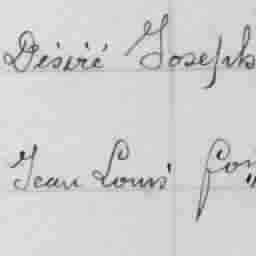 Désiré Joseph
Jean Louis